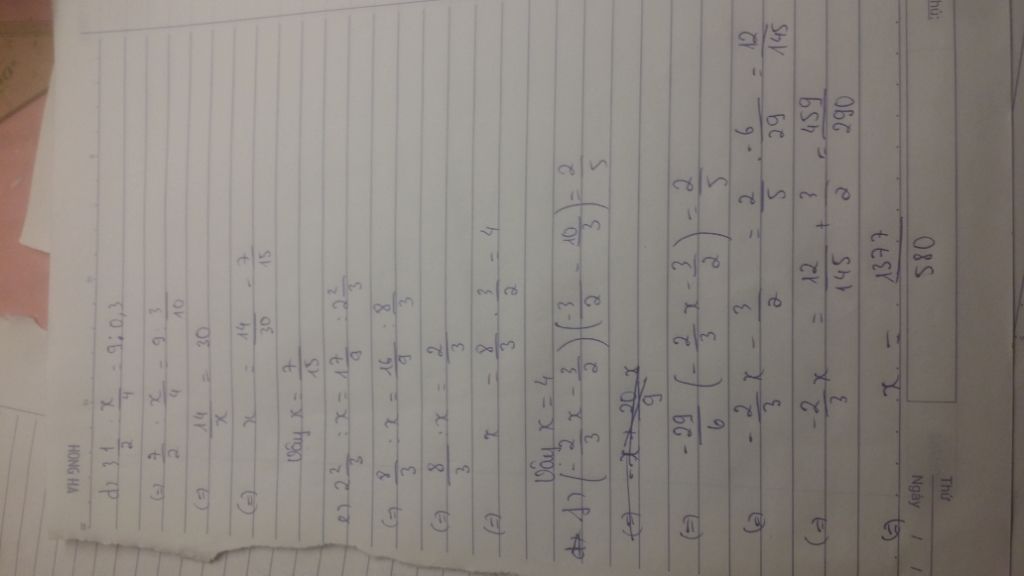 HONG HA
d) 3 1/2 : x/4 = 9 : 0,3
(=) 7/2 : x/4 = 9 : 3/10
(=) 14/x = 30
(=) x = 14/30 = 7/15
Vậy x = 7/15
e) 2 2/3 : x = 1 7/9 : 2 2/3
(=) 8/3 : x = 16/9 : 8/3
(=) 8/3 : x = 2/3
(=) x = 8/3 . 3/2 = 4
Vậy x = 4
f) (-2/3 x - 3/2) (-3/2 - 10/3) = 2/5
(=) -29/6 (-2/3 x - 3/2) = 2/5
(=) -2/3 x - 3/2 = 2/5 . 6/29 = 12/145
(=) -2/3 x = 12/145 + 3/2 = 459/290
(=) x = 1377/580
Thứ
Ngày / /